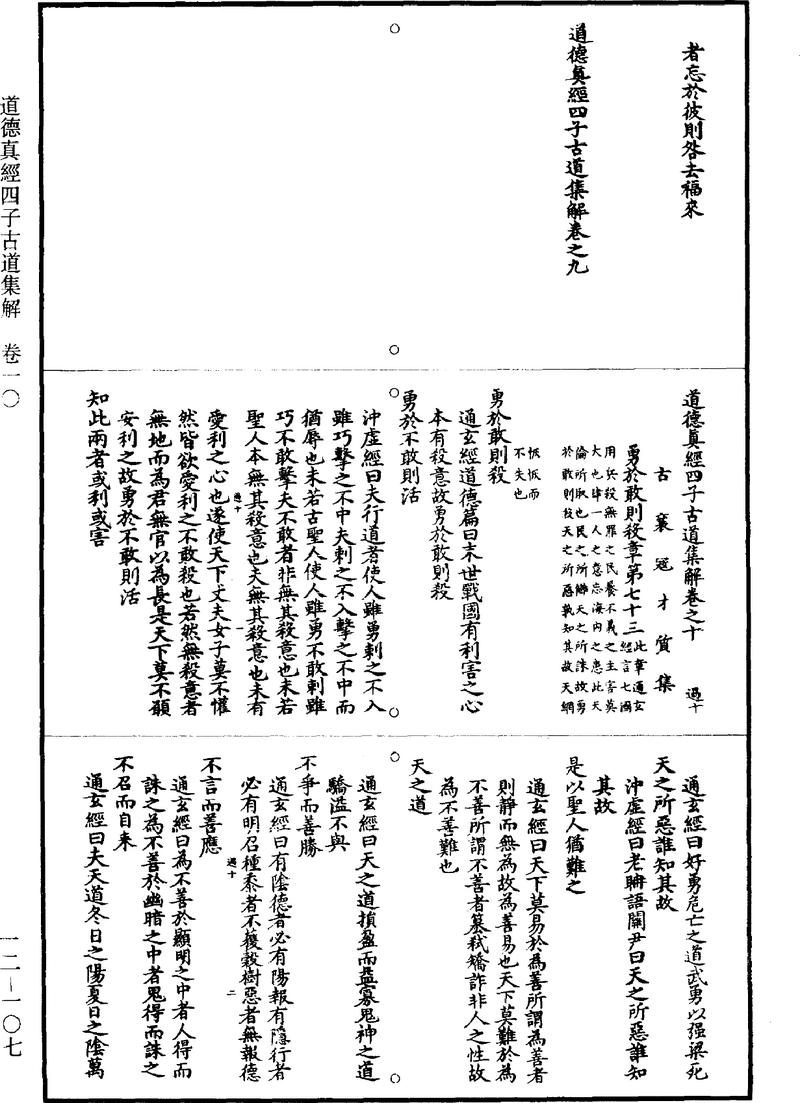 者忘於彼則咎去福來
道德真經四子古道集解卷之九
道德真經四子古道集解卷之十 過十
古襄寇才質集
勇於敢則殺章第七十三
此章通玄
經言七國
用兵殺無罪之民養不義之主害莫
大也肆一人之意忘海內之患此天
倫所取也民之所讎天之所誅故勇
於敢則殺天之所惡孰知其故天網
恢恢而
不失也
勇於敢則殺
通玄經道德篇曰末世戰國有利害之心
本有殺意故勇於敢則殺
勇於不敢則活
沖虛經曰夫行道者使人雖勇刺之不入
雖巧擊之不中夫刺之不入擊之不中而
猶辱也未若古聖人使人雖勇不敢刺雖
巧不敢擊夫不敢者非無其殺意也未若
聖人本無其殺意也夫無其殺意也未有
過十 一
愛利之心也遂使天下丈夫女子莫不懽
然皆欲愛利之不敢殺也若然無殺意者
無地而為君無官以為長是天下莫不願
安利之故勇於不敢則活
知此兩者或利或害
通玄經曰好勇危亡之道武勇以强梁死
天之所惡誰知其故
沖虛經曰老聃語關尹曰天之所惡誰知
其故
是以聖人猶難之
通玄經曰天下莫易於為善所謂為善者
則靜而無為故為善易也天下莫難於為
不善所謂不善者篡弒矯詐非人之性故
為不善難也
天之道
通玄經曰天之道損盈而益寡鬼神之道
驕溢不與
不爭而善勝
通玄經曰有陰德者必有陽報有隱行者
必有明召種黍者不穫穀樹惡者無報德
過十 二
不言而善應
通玄經曰為不善於顯明之中者人得而
誅之為不善於幽暗之中者鬼得而誅之
不召而自來
通玄經曰夫天道冬日之陽夏日之陰萬
道德真經四子古道集解 卷一〇
一二—一〇七